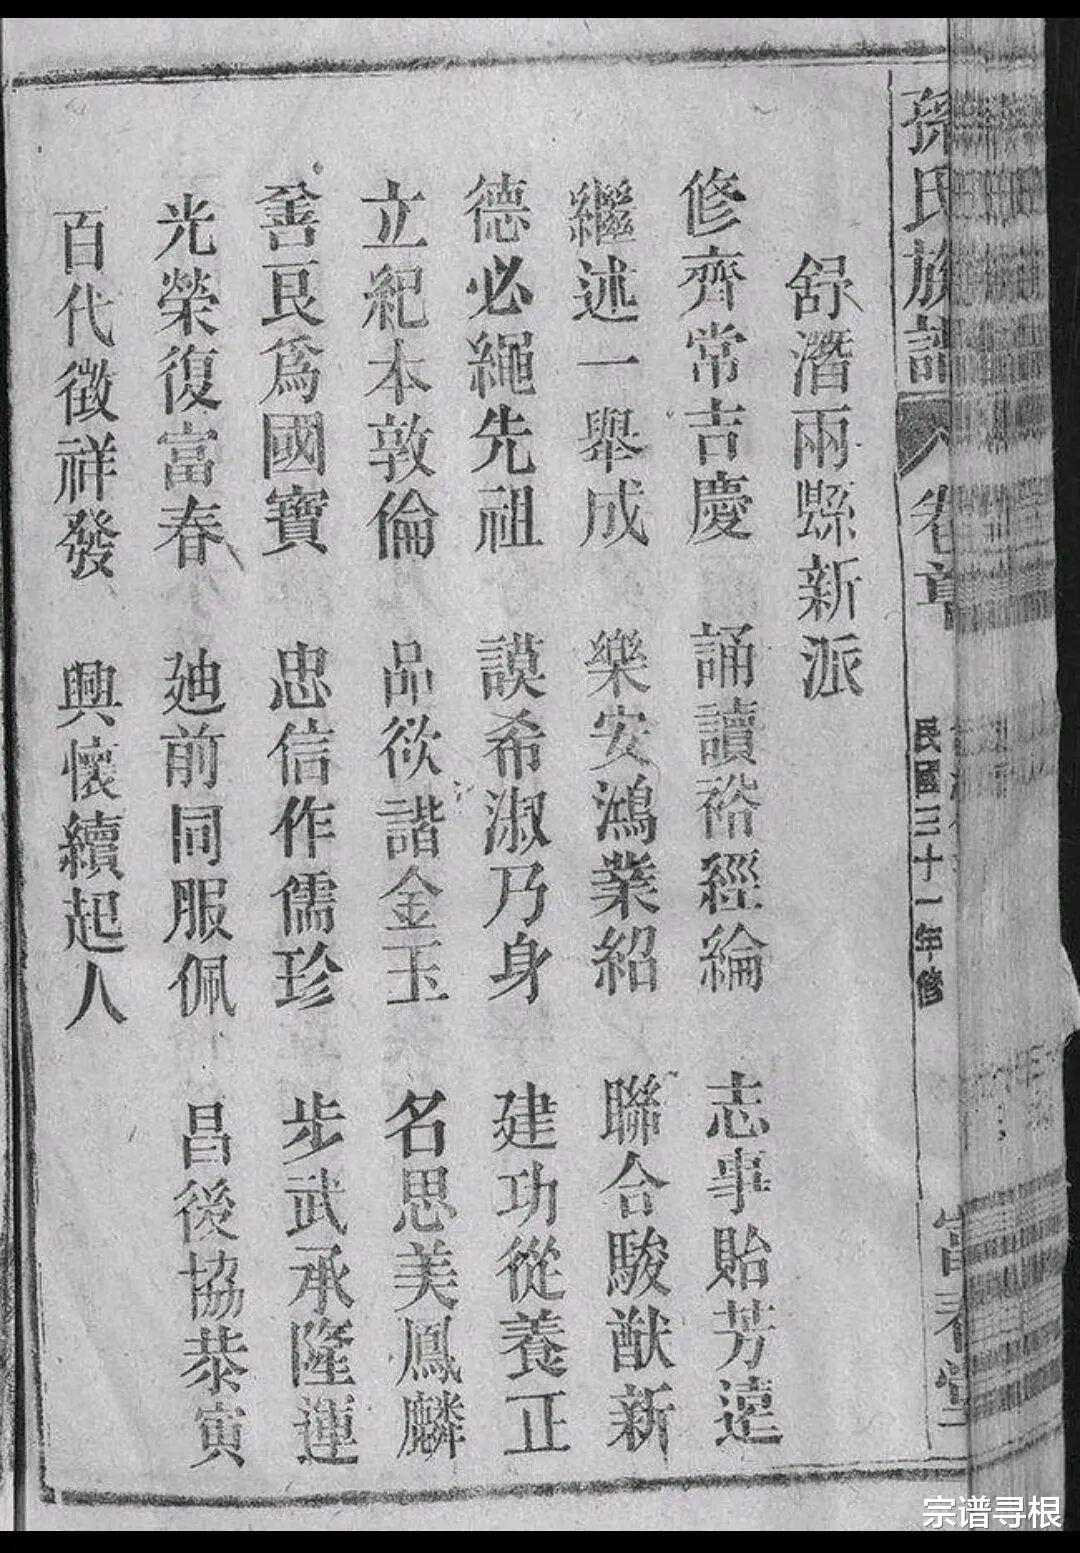 孫氏族譜
卷首
民國三十一年修
富春堂
舒潛兩縣新派
修齊常吉慶 誦讀裕經綸 志事貽芳遠
繼述一舉成 樂安鴻業紹 聯合駿猷新
德必繩先祖 謨希淑乃身 建功從養正
立紀本敦倫 品欲諧金玉 名思美鳳麟
善良爲國寶 忠信作儒珍 步武承隆運
光榮復富春 廸前同服佩 昌後協恭寅
百代徵祥發 興懷續起人
宗谱寻根